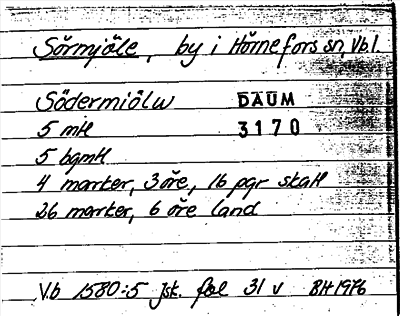 Sörmjöle, by i Hörnefors sn, Vb l.
Södermiölw DAUM
5 mtl 3170
5 bgmtl
4 marker, 3 öre, 16 pgr skatt
26 marker, 6 öre land
Vb 1580:5 Jsk. fol 31 v BH 1976